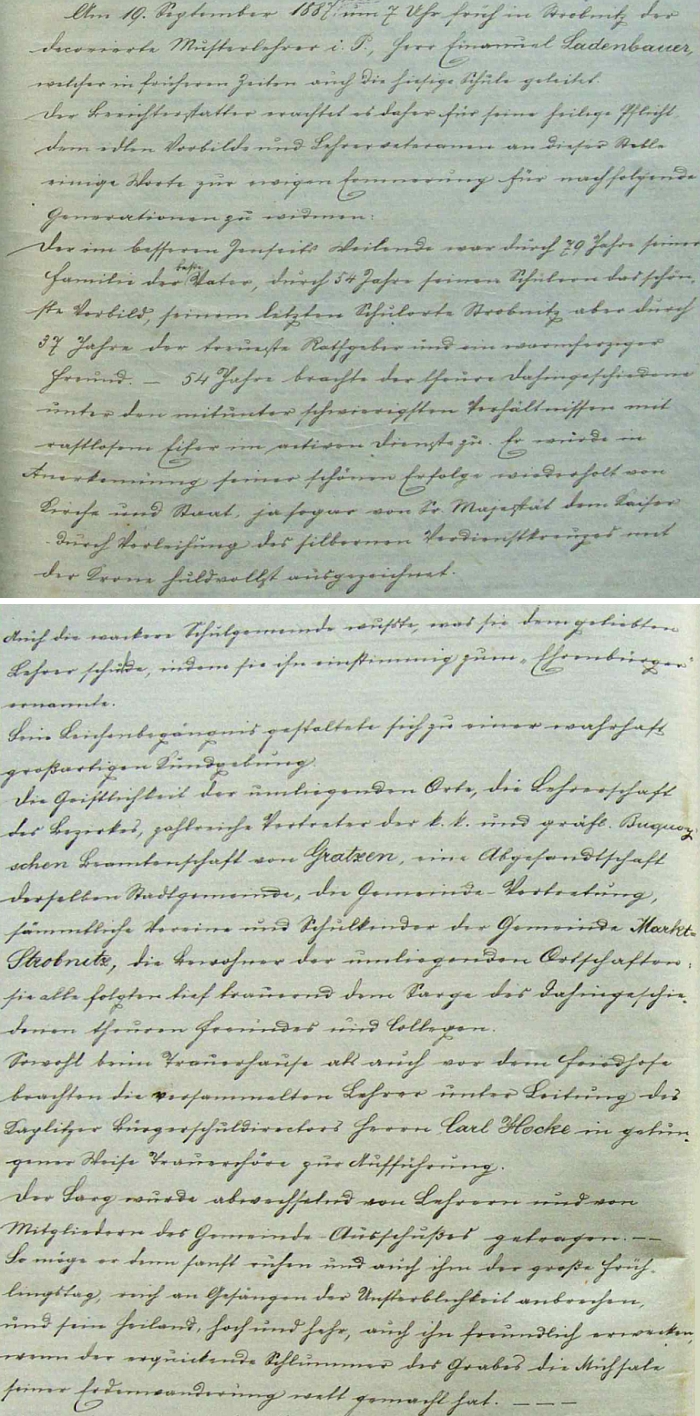 Am 19. September 1887 um 7 Uhr früh in Strobnitz der
decorierte Musterlehrer i. P., Herr Emanuel Ladenbauer,
welcher in früheren Zeiten auch die hiesige Schule geleitet.
Der Berichterstatter erachtet es daher für seine heilige Pflicht
dem edlen Vorbilde und Lehrerveteranen an dieser Stelle
einige Worte zur ewigen Erinnerung für nachfolgende
Generationen zu widmen:
Der im besseren Jenseits Weilende war durch 79 Jahre seiner
Familie der beste Vater, durch 54 Jahre seinen Schülern das schön-
ste Vorbild, seinem letzten Schulorte Strobnitz aber durch
37 Jahre der treueste Rathgeber und ein warmherziger
Freund. — 54 Jahre brachte der theure Dahingeschiedene
unter den mitunter schwierigsten Verhältnissen mit
rastlosem Eifer im activen Dienste zu. Er wurde in
Anerkennung seiner schönen Erfolge wiederholt von
Kirche und Staat, ja sogar von Sr. Majestät dem Kaiser
durch Verleihung des silbernen Verdienstkreuzes mit
der Krone huldvollst ausgezeichnet.
Auch die wackere Schulgemeinde wußte, was sie dem geliebten
Lehrer schulde, indem sie ihn einstimmig zum „Ehrenbürger"
ernannte.
Sein Leichenbegängnis gestaltete sich zu einer wahrhaft
großartigen Kundgebung.
Die Geistlichkeit der umliegenden Orte, die Lehrerschaft
des Bezirkes, zahlreiche Vertreter der k. k. und gräfl. Buquoy-
schen Beamtenschaft von Gratzen, eine Abgesandtschaft
derselben Stadtgemeinde, die Gemeinde-Vertretung,
sämmtliche Vereine und Schulkinder der Gemeinde Markt-
Strobnitz, die Bewohner der umliegenden Ortschaften:
sie alle folgten tief trauernd dem Sarge des dahingeschie-
denen theuren Freundes und Collegen.
Sowohl beim Trauerhause als auch vor dem Friedhofe
brachten die versammelten Lehrer unter Leitung des
Kaplitzer Bürgerschuldirectors Herrn Carl Hocke in gelun-
gener Weise Trauerchöre zur Aufführung.
Der Sarg wurde abwechselnd von Lehrern und von
Mitgliedern des Gemeinde-Ausschußes getragen. — —
So möge er denn sanft ruhen und auch ihm der große Früh-
lingstag, reich an Gesängen der Unsterblichkeit anbrechen,
und sein Heiland, hoch und hehr, auch ihn freundlich erwecken,
wenn der erquickende Schlummer des Grabes die Mühsale
seiner Erdenwanderung wett gemacht hat. — — —